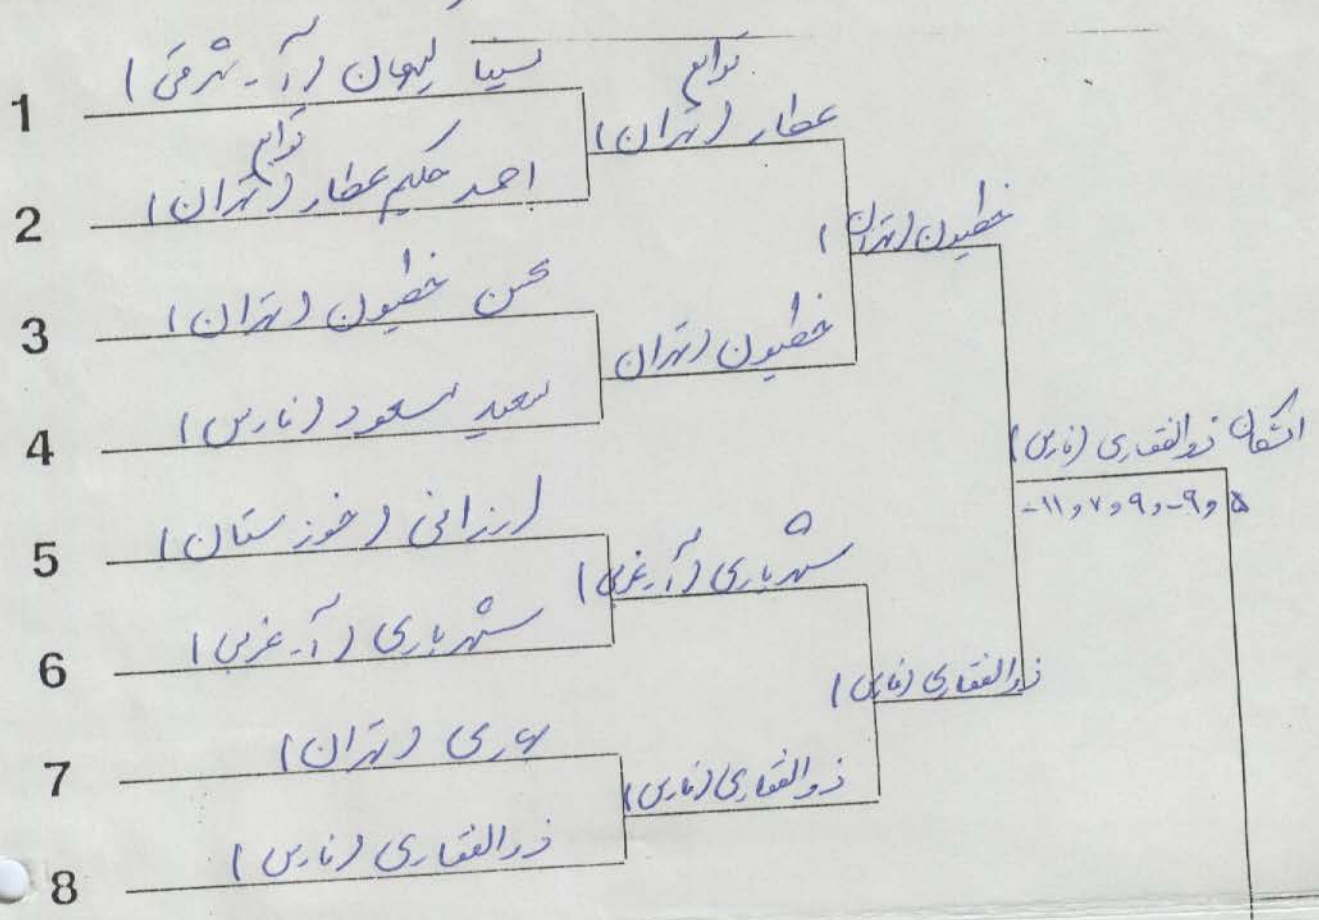 1 سینا کیهان (آ-شرقی)
2 احمد حکیم عطار (توابع تهران)
3 محسن خطیبون (تهران)
4 سعید مسعود (فارس)
5 ارزانی (خوزستان)
6 شهریاری (آ-غربی)
7 (تهران)
8 ذوالفقاری (فارس)
عطار (توابع تهران)
خطیبون (تهران
شهریاری (آ-غربی)
ذوالفقاری (فارس)
خطیبون (تهران)
ذوالفقاری (فارس)
اشکان ذوالفقاری (فارس)
۵ و ۹- و ۹ و ۷ و ۱۱-